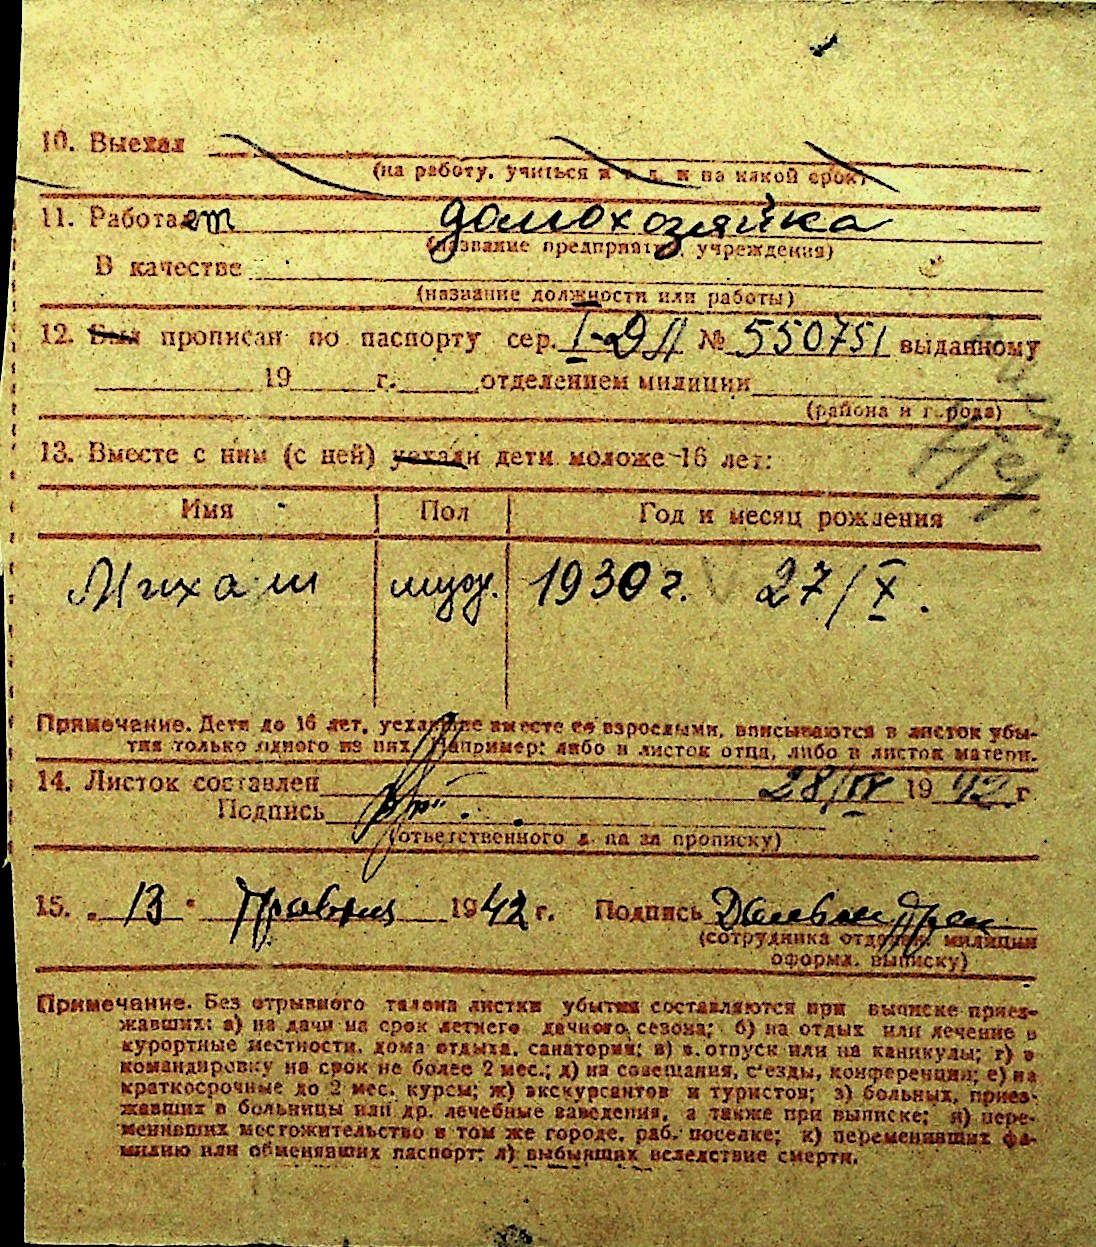 10. Выехал
(на работу, учиться и т. д. и на какой срок)
11. Работает домохозяйка
(название предприятия, учреждения)
В качестве
(название должности или работы)
12. Был прописан по паспорту сер. I-ДД № 550751 выданному
19 г. отделением милиции
(района и города)
13. Вместе с ним (с ней) уехали дети моложе 16 лет:
Имя Пол Год и месяц рождения
Михаил муж. 1930 г. 27/X.
Примечание. Дети до 16 лет, уехавшие вместе со взрослыми, вписываются в листок убы-
тия только одного из них. Например: либо в листок отца, либо в листок матери.
14. Листок составлен 28/IV 1942 г
Подпись
(ответственного д. на за прописку)
15. „13" Травня 1942 г. Подпись
(сотрудника отделен. милиции
оформл. выписку)
Примечание. Без отрывного талона листки убытия составляются при выписке приез-
жавших: а) на дачи на срок летнего дачного сезона; б) на отдых или лечение в
курортные местности, дома отдыха, санатории; в) в отпуск или на каникулы; г) в
командировку на срок не более 2 мес.; д) на совещания, с'езды, конференции; е) на
краткосрочные до 2 мес. курсы; ж) экскурсантов и туристов; з) больных, приез-
жавших в больницы или др. лечебные заведения, а также при выписке; и) пере-
менивших местожительство в том же городе, раб. поселке; к) переменивших фа-
милию или обменявших паспорт; л) выбывших вследствие смерти.